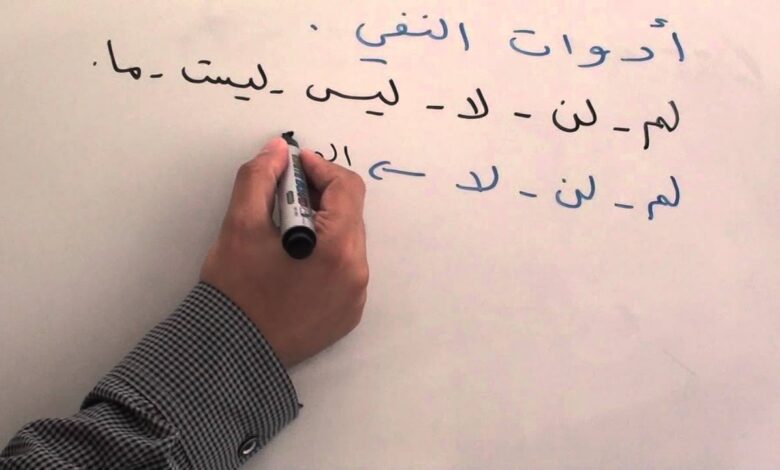 أدوات النفي .
لم - لن - لا - ليس - ليست - ما .
لم - لن - لا ←